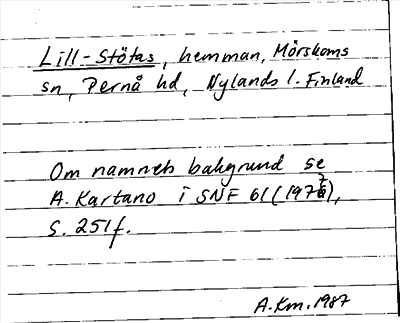 Lill-Stötas, hemman, Mörskoms
sn, Pernå hd, Nylands l. Finland
Om namnets bakgrund se
A. Kartano i SNF 61 (1977),
s. 251f.
A.Km. 1987